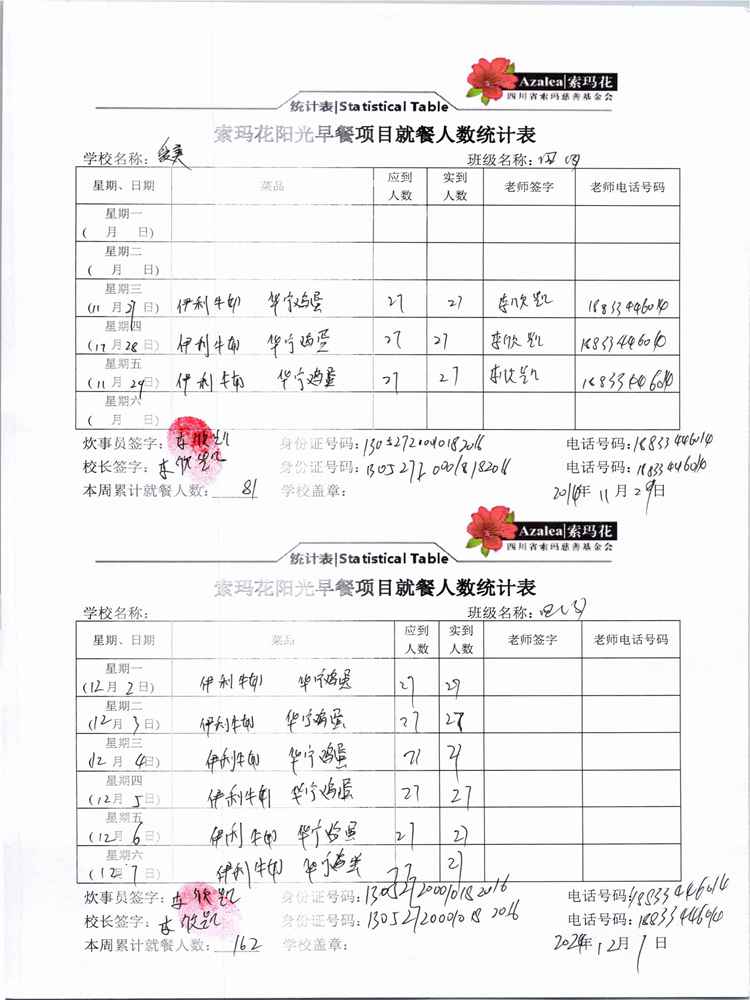 Azalea|索玛花
四川省索玛慈善基金会
统计表|Statistical Table
索玛花阳光早餐项目就餐人数统计表
学校名称： 班级名称：
星期、日期 菜品 应到人数 实到人数 老师签字 老师电话号码
星期一 ( 月 日)
星期二 ( 月 日)
星期三 (11月27日) 伊利牛奶 华宁鸡蛋 27 27 李欣凯 18833446010
星期四 (11月28日) 伊利牛奶 华宁鸡蛋 27 27 李欣凯 18833446010
星期五 (11月29日) 伊利牛奶 华宁鸡蛋 27 27 李欣凯
星期六 ( 月 日)
炊事员签字：李欣凯 身份证号码： 电话号码：
校长签字：李欣凯 身份证号码： 电话号码：18833446010
本周累计就餐人数：81 学校盖章： 年11月29日
Azalea|索玛花
四川省索玛慈善基金会
统计表|Statistical Table
索玛花阳光早餐项目就餐人数统计表
学校名称： 班级名称：
星期、日期 菜品 应到人数 实到人数 老师签字 老师电话号码
星期一 (12月2日) 伊利牛奶 华宁鸡蛋 27 27
星期二 (12月3日) 伊利牛奶 华宁鸡蛋 27 27
星期三 (12月4日) 伊利牛奶 华宁鸡蛋 27
星期四 (12月5日) 伊利牛奶 华宁鸡蛋 27 27
星期五 (12月6日) 伊利牛奶 华宁鸡蛋 27 27
星期六 (12月7日) 伊利牛奶 华宁鸡蛋 27 27
炊事员签字：李欣凯 身份证号码：130527200010182016 电话号码：
校长签字：李欣凯 身份证号码：130527200010182016 电话号码：18833446010
本周累计就餐人数：162 学校盖章： 2024年12月7日